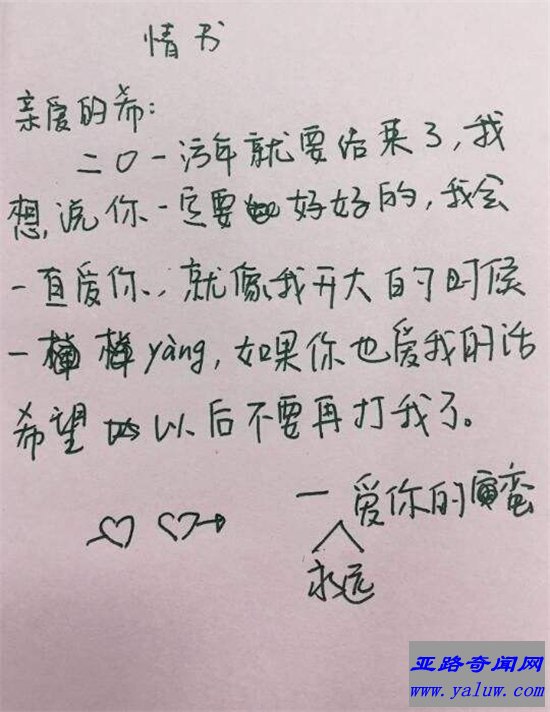 情书
亲爱的希：
二〇一污年就要结束了，我
想，说你一定要好好的，我会
一直爱你，就像我开大的时候
一 yàng，如果你也爱我的话
希望 以后不要再打我了。
一爱你的 蛮
永远
亚路奇闻网
www.yaluw.com